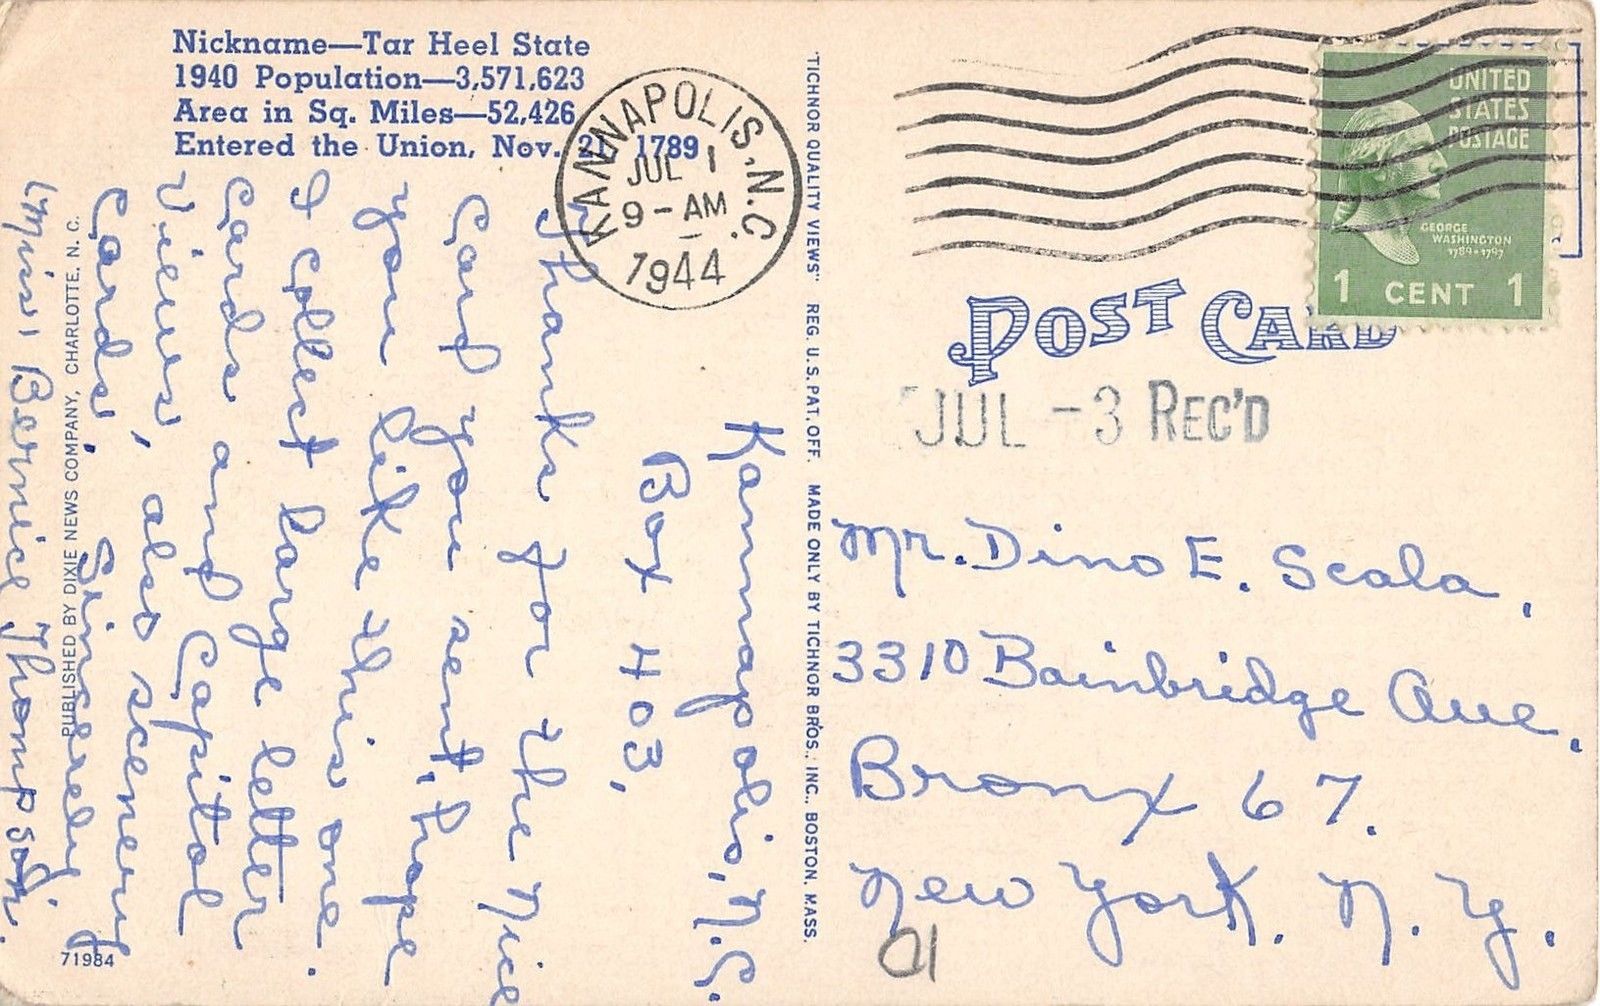 Nickname—Tar Heel State
1940 Population—3,571,623
Area in Sq. Miles—52,426
Entered the Union, Nov. 21, 1789
KANNAPOLIS, N.C.
JUL 1
9-AM
1944
UNITED
STATES
POSTAGE
GEORGE
WASHINGTON
1789-1797
1 CENT 1
POST CARD
JUL -3 REC'D
Kannapolis, N.C.
Box 403,
Thanks for the nice
card you sent, hope
you like this one.
I collect large letter
cards and Capitol
Views, also scenery
Cards.
Sincerely
(Miss) Bernice Thompson.
PUBLISHED BY DIXIE NEWS COMPANY, CHARLOTTE, N. C.
71984
"TICHNOR QUALITY VIEWS" REG. U. S. PAT. OFF. MADE ONLY BY TICHNOR BROS., INC., BOSTON, MASS.
Mr. Dino E. Scala,
3310 Bainbridge Ave,
Bronx 67.
New York. N. Y.